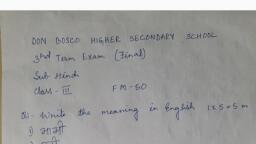 DON BOSCO HIGHER SECONDARY SCHOOL
3rd Term Exam (Final)
Sub Hindi
Class - III F M - 50
Q1. Write the meaning in English 1x5=5m
1) मामी